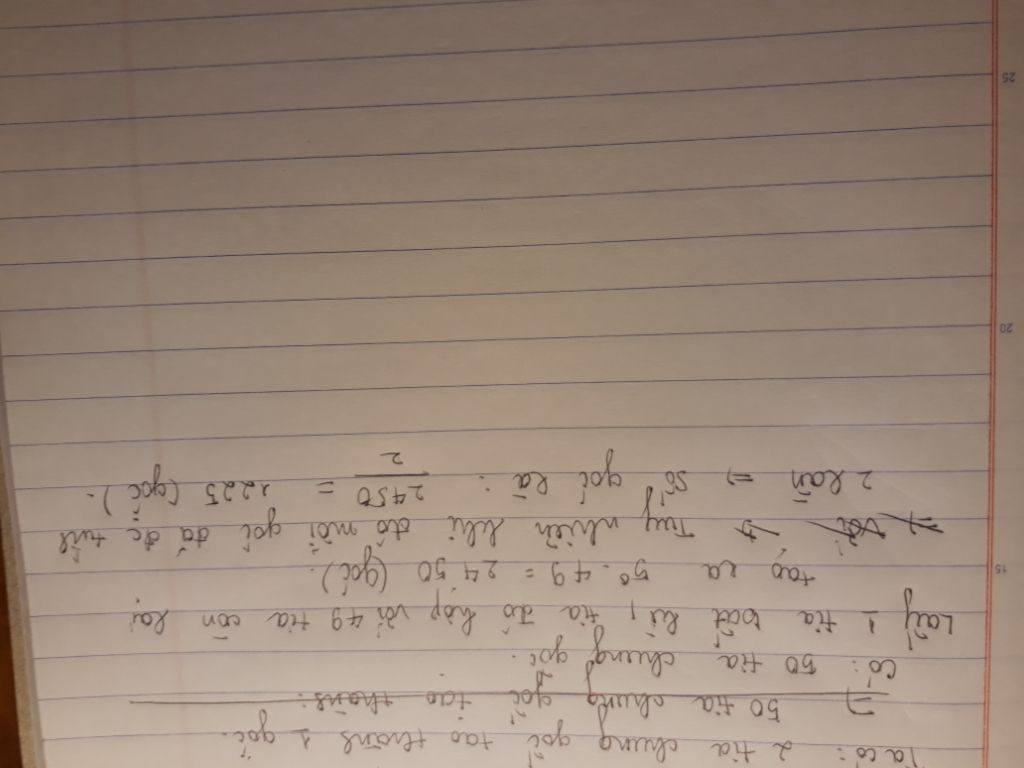 Ta có: 2 tia chung gốc tạo thành 1 góc.
⇒ 50 tia chung gốc tạo thành:
Có: 50 tia chung gốc.
Lấy 1 tia bất kì, tia đó hợp với 49 tia còn lại
tạo ra 50.49 = 2450 (góc).
⇒ Với Tuy nhiên khi đó mỗi góc đã đc tính
2 lần ⇒ số góc là: 2450/2 = 1225 (góc).
15
20
25